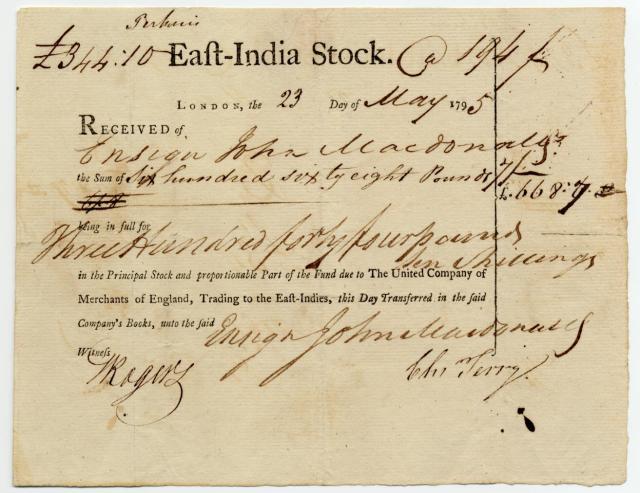 £344:10 Eaſt-India Stock. @ 194
London, the 23 Day of May 1795
Received of
Ensign John Macdonald
the Sum of Six hundred sixty eight Pounds 7/
£.668:7.
being in full for
Three Hundred forty four pounds
ten shillings
in the Principal Stock and proportionable Part of the Fund due to The United Company of
Merchants of England, Trading to the Eaſt-Indies, this Day Transferred in the said
Company's Books, unto the said Ensign John Macdonald
Witneſs
Rogers Chs Terry.